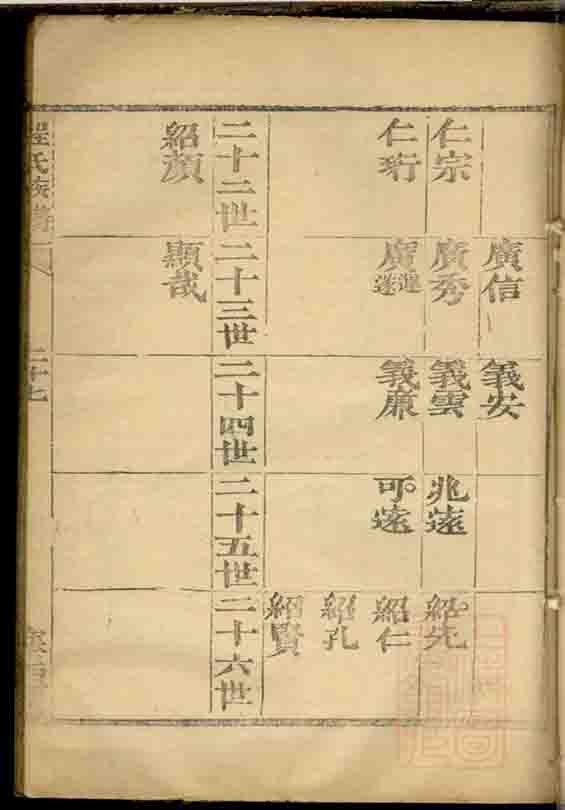 廣信 義安
仁宗 廣秀 義雲 兆遠 紹先
仁珩 廣 義廉 可遠 紹仁
紹孔
紹賢
二十二世 二十三世 二十四世 二十五世 二十六世
紹顏 顯哉
程氏族譜 二十七